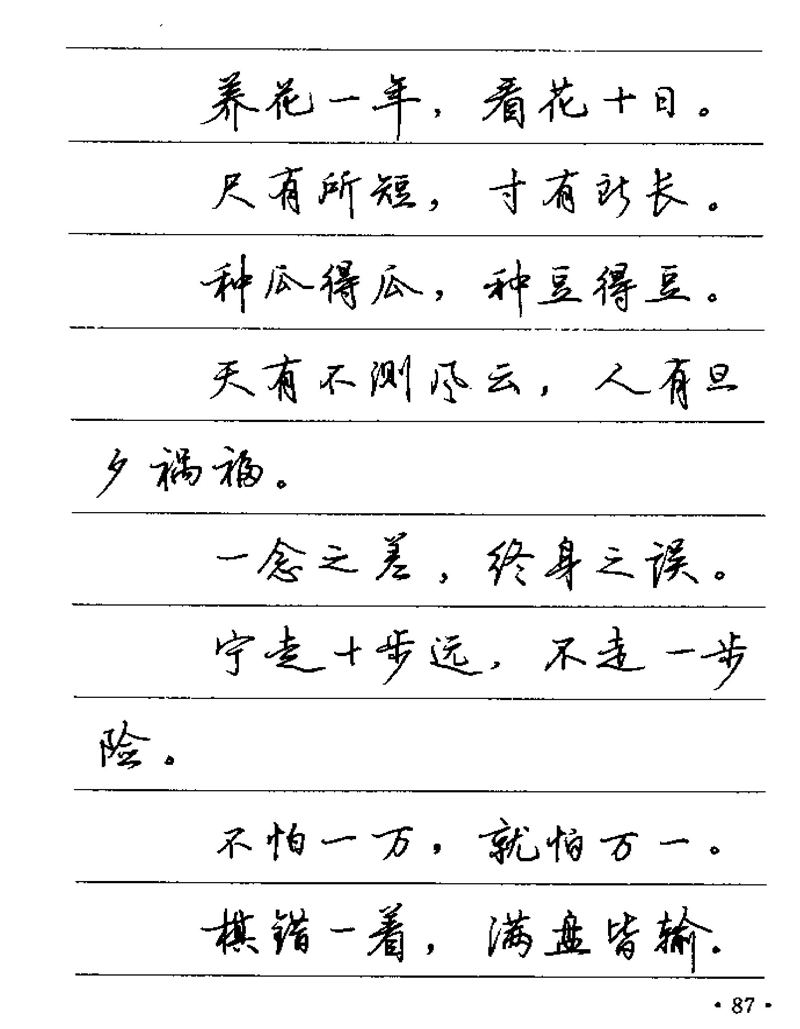 养花一年，看花十日。
尺有所短，寸有所长。
种瓜得瓜，种豆得豆。
天有不测风云，人有旦
夕祸福。
一念之差，终身之误。
宁走十步远，不走一步
险。
不怕一万，就怕万一。
棋错一着，满盘皆输。
·87·